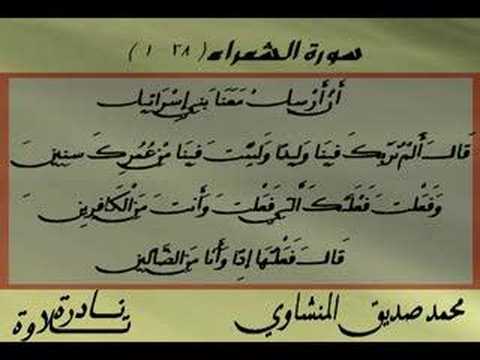 سورة الشعراء ( ٣٨ - ١ )
أَنْ أَرْسِلْ مَعَنَا بَنِي إِسْرَائِيلَ
قَالَ أَلَمْ نُرَبِّكَ فِينَا وَلِيدًا وَلَبِثْتَ فِينَا مِنْ عُمُرِكَ سِنِينَ
وَفَعَلْتَ فَعْلَتَكَ الَّتِي فَعَلْتَ وَأَنْتَ مِنَ الْكَافِرِينَ
قَالَ فَعَلْتُهَا إِذًا وَأَنَا مِنَ الضَّالِّينَ
محمد صديق المنشاوي
تلاوة نادرة